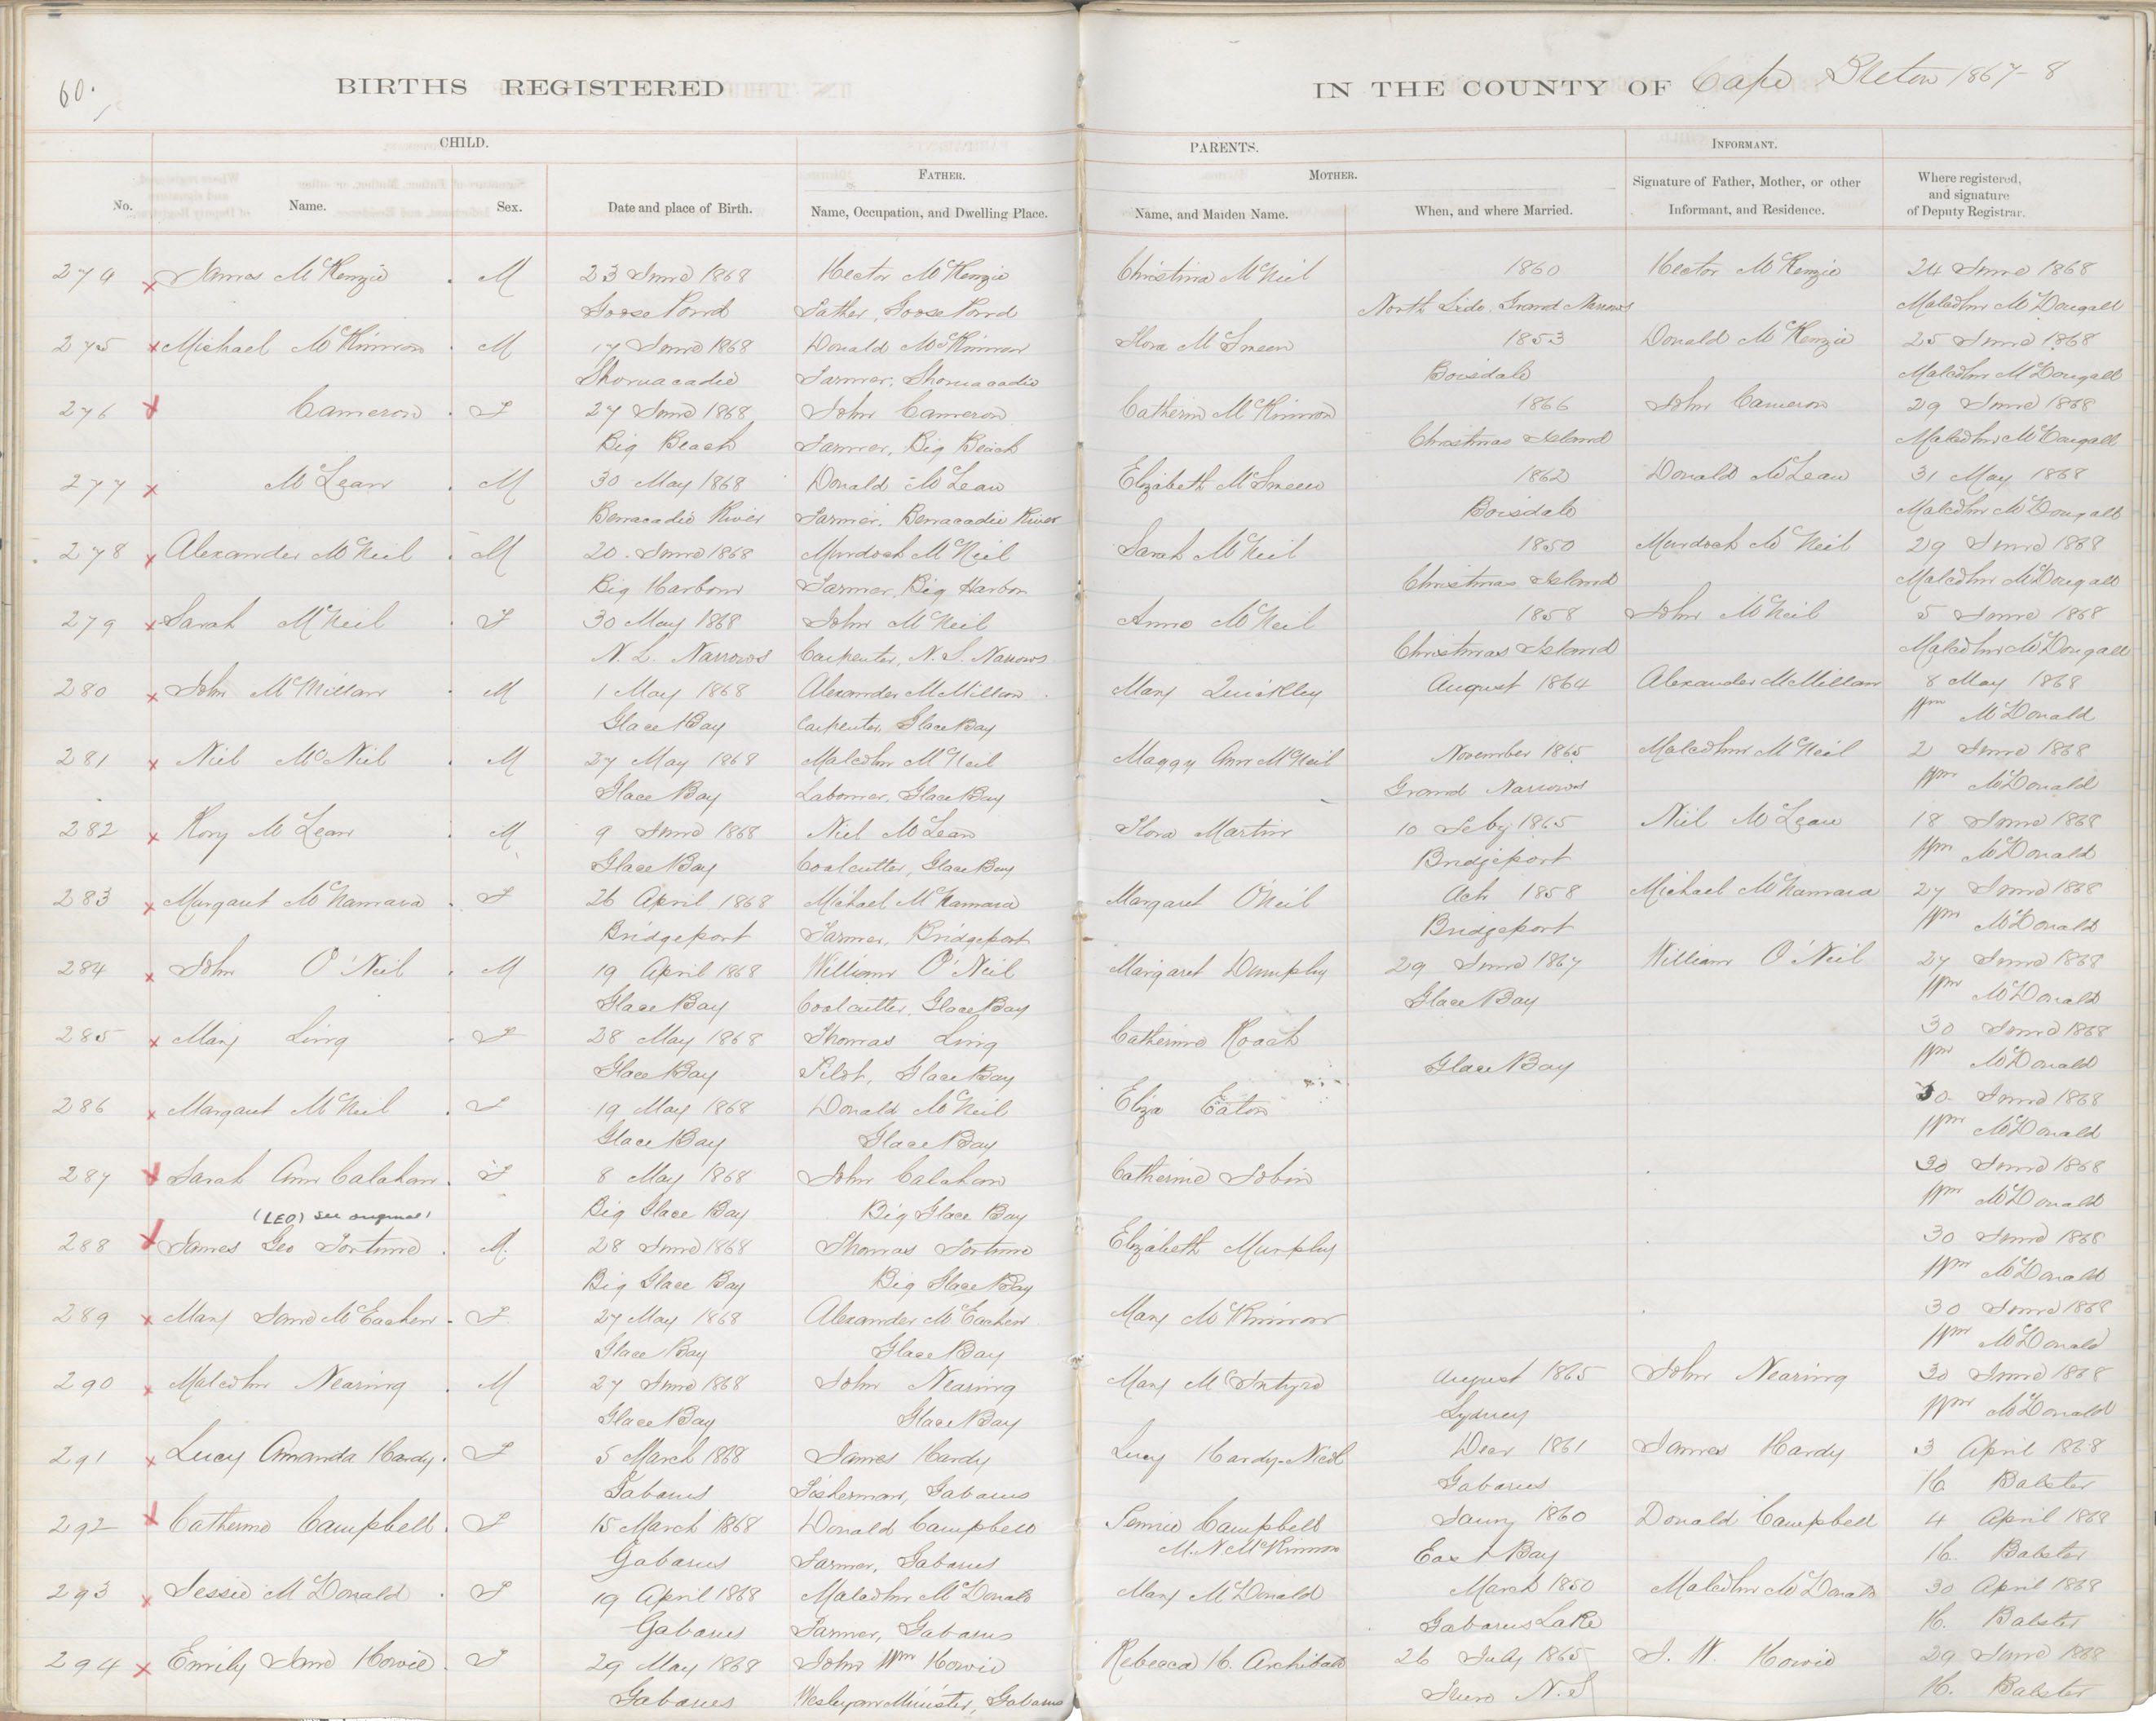 60.
BIRTHS REGISTERED IN THE COUNTY OF Cape Breton 1867-8
CHILD. PARENTS. INFORMANT.
FATHER. MOTHER.
No. Name. Sex. Date and place of Birth. Name, Occupation, and Dwelling Place. Name, and Maiden Name. When, and where Married. Signature of Father, Mother, or other Informant, and Residence. Where registered, and signature of Deputy Registrar.
274 x James McKenzie . M 23 June 1868 Hector McKenzie Christina McNeil 1860 Hector McKenzie 24 June 1868
Goose Pond Father, Goose Pond North Side, Grand Narrows Malcolm McDougall
275 x Michael McKinnon . M 17 June 1868 Donald McKinnon Flora McSween 1853 Donald McKenzie 25 June 1868
Shonacadie Farmer, Shonacadie Boisdale Malcolm McDougall
276 Cameron . F 27 June 1868 John Cameron Catherin McKinnon 1866 John Cameron 29 June 1868
Big Beach Farmer, Big Beach Christmas Island Malcolm McDougall
277 x McLean . M 30 May 1868 Donald McLean Elizabeth McSween 1862 Donald McLean 31 May 1868
Benacadie River Farmer, Benacadie River Boisdale Malcolm McDougall
278 x Alexander McNeil . M 20 June 1868 Murdoch McNeil Sarah McNeil 1850 Murdoch McNeil 29 June 1868
Big Harbour Farmer, Big Harbor Christmas Island Malcolm McDougall
279 x Sarah McNeil . F 30 May 1868 John McNeil Anne McNeil 1858 John McNeil 5 June 1868
N. S. Narrows Carpenter, N. S. Narrows Christmas Island Malcolm McDougall
280 x John McMillan . M 1 May 1868 Alexander McMillan Mary Quickley August 1864 Alexander McMillan 8 May 1868
Glace Bay Carpenter, Glace Bay Wm McDonald
281 x Niel McNiel . M 27 May 1868 Malcolm McNeil Maggy Ann McNeil November 1865 Malcolm McNeil 2 June 1868
Glace Bay Labourer, Glace Bay Grand Narrows Wm McDonald
282 x Rory McLean . M 9 June 1868 Niel McLean Flora Martin 10 Feby 1865 Niel McLean 18 June 1868
Glace Bay Coalcutter, Glace Bay Bridgeport Wm McDonald
283 x Margaret McNamara . F 26 April 1868 Michael McNamara Margaret O'Neil Oct 1858 Michael McNamara 27 June 1868
Bridgeport Farmer, Bridgeport Bridgeport Wm McDonald
284 x John O'Neil . M 19 April 1868 William O'Neil Margaret Dumphy 29 June 1867 William O'Neil 27 June 1868
Glace Bay Coalcutter, Glace Bay Glace Bay Wm McDonald
285 x Mary Ling . F 28 May 1868 Thomas Ling Catherine Roach 30 June 1868
Glace Bay Pilot, Glace Bay Glace Bay Wm McDonald
286 x Margaret McNeil . F 19 May 1868 Donald McNeil Eliza Eaton 30 June 1868
Glace Bay Glace Bay Wm McDonald
287 Sarah Ann Calahan . F 8 May 1868 John Calahan Catherine Tobin 30 June 1868
Big Glace Bay Big Glace Bay Wm McDonald
(LEO) see original!
288 James Geo Fortune . M. 28 June 1868 Thomas Fortune Elizabeth Murphy 30 June 1868
Big Glace Bay Big Glace Bay Wm McDonald
289 x Mary Jane McEachen . F 27 May 1868 Alexander McEachen Mary McKinnon 30 June 1868
Glace Bay Glace Bay Wm McDonald
290 x Malcolm Nearing . M 27 June 1868 John Nearing Mary McIntyre August 1865 John Nearing 30 June 1868
Glace Bay Glace Bay Sydney Wm McDonald
291 x Lucy Amanda Hardy . F 5 March 1868 James Hardy Lucy Hardy-Nicol Decr 1861 James Hardy 3 April 1868
Gabarus Fisherman, Gabarus Gabarus H. Balster
292 Catherine Campbell . F 15 March 1868 Donald Campbell Jennie Campbell Jany 1860 Donald Campbell 4 April 1868
M.N McKinnon
Gabarus Farmer, Gabarus East Bay H. Balster
293 x Jessie McDonald . F 19 April 1868 Malcolm McDonald Mary McDonald March 1850 Malcolm McDonald 30 April 1868
Gabarus Farmer, Gabarus Gabarus Lake H. Balster
294 x Emily Jane Howie . F 29 May 1868 John Wm Howie Rebecca H. Archibald 26 July 1865 J. W. Howie 29 June 1868
Gabarus Wesleyan Minister, Gabarus Truro N.S H. Balster